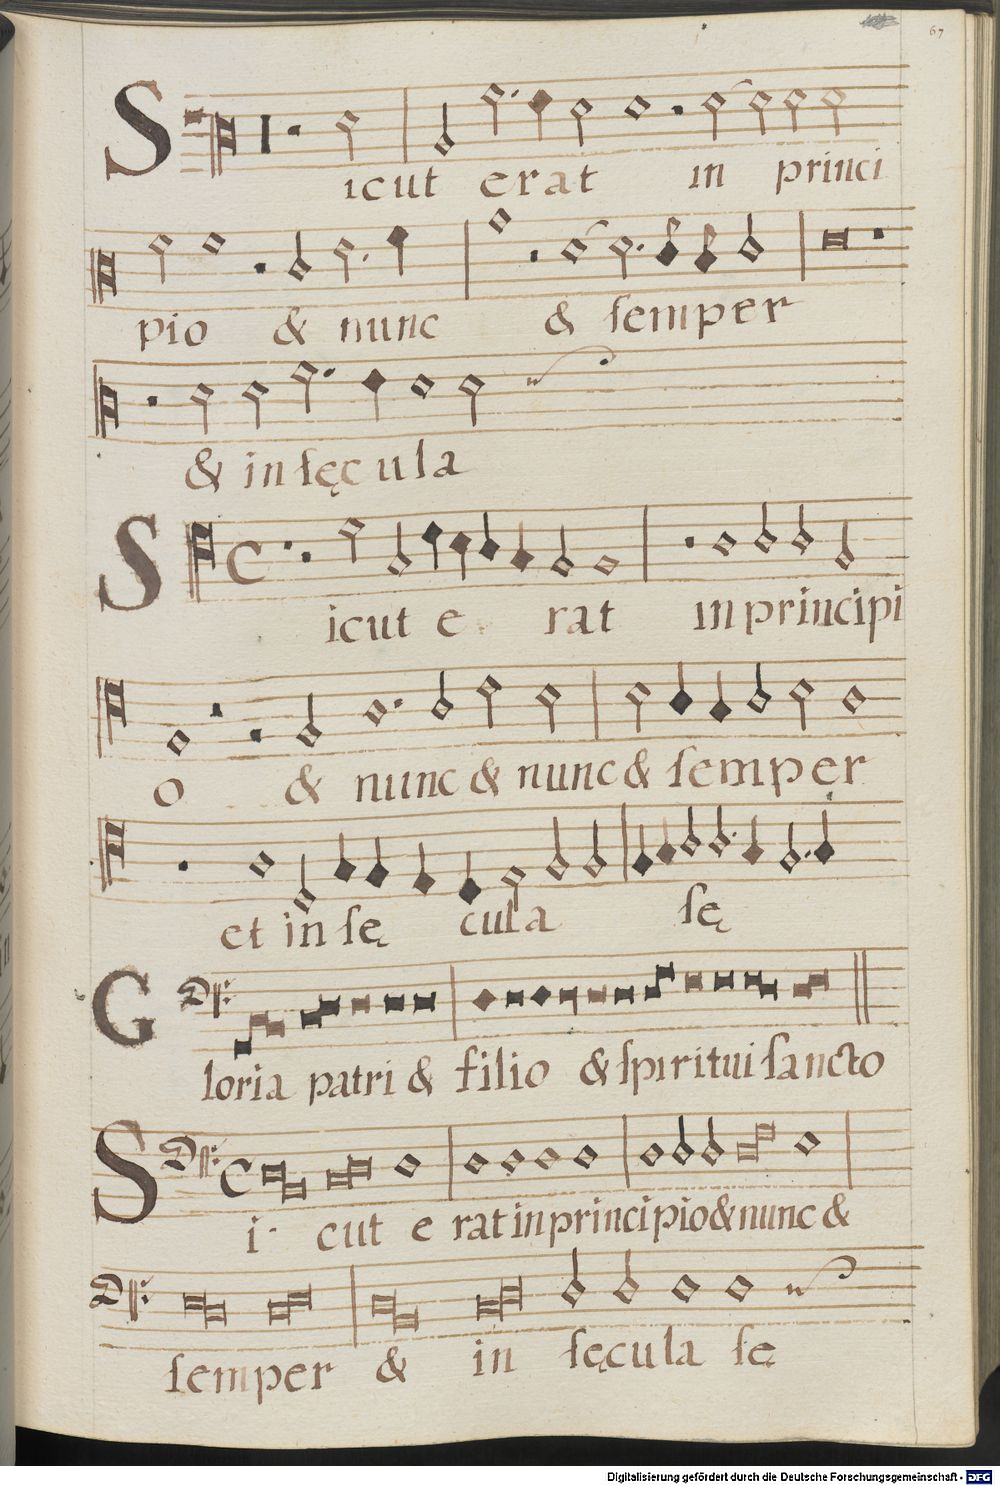 67
Sicut erat in princi
pio & nunc & ſemper
& in ſęcula
Sicut e rat in principi
o & nunc & nunc & ſemper
et in ſę cula ſę
Gloria patri & filio & ſpiritui ſancto
Si cut e rat in principio & nunc &
ſemper & in ſęcula ſę
Digitalisierung gefördert durch die Deutsche Forschungsgemeinschaft - DFG